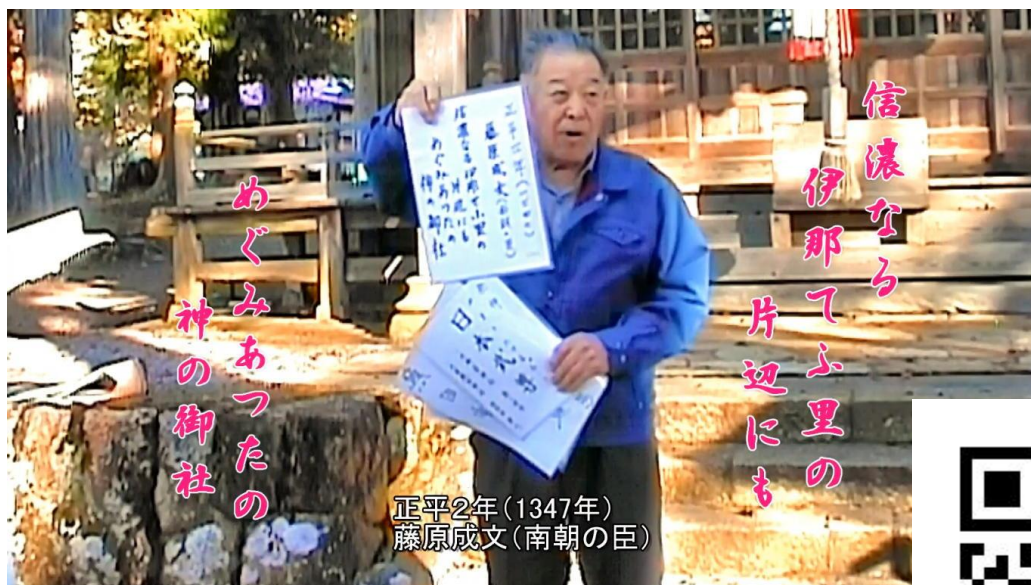 信濃なる
伊那てふ里の
片辺にも
めぐみあつたの
神の御社
藤原成文(南朝の臣)
信濃なる伊那てふ里の
片辺にも
めぐみあつたの
神の御社
日本武尊
正平2年(1347年)
藤原成文(南朝の臣)